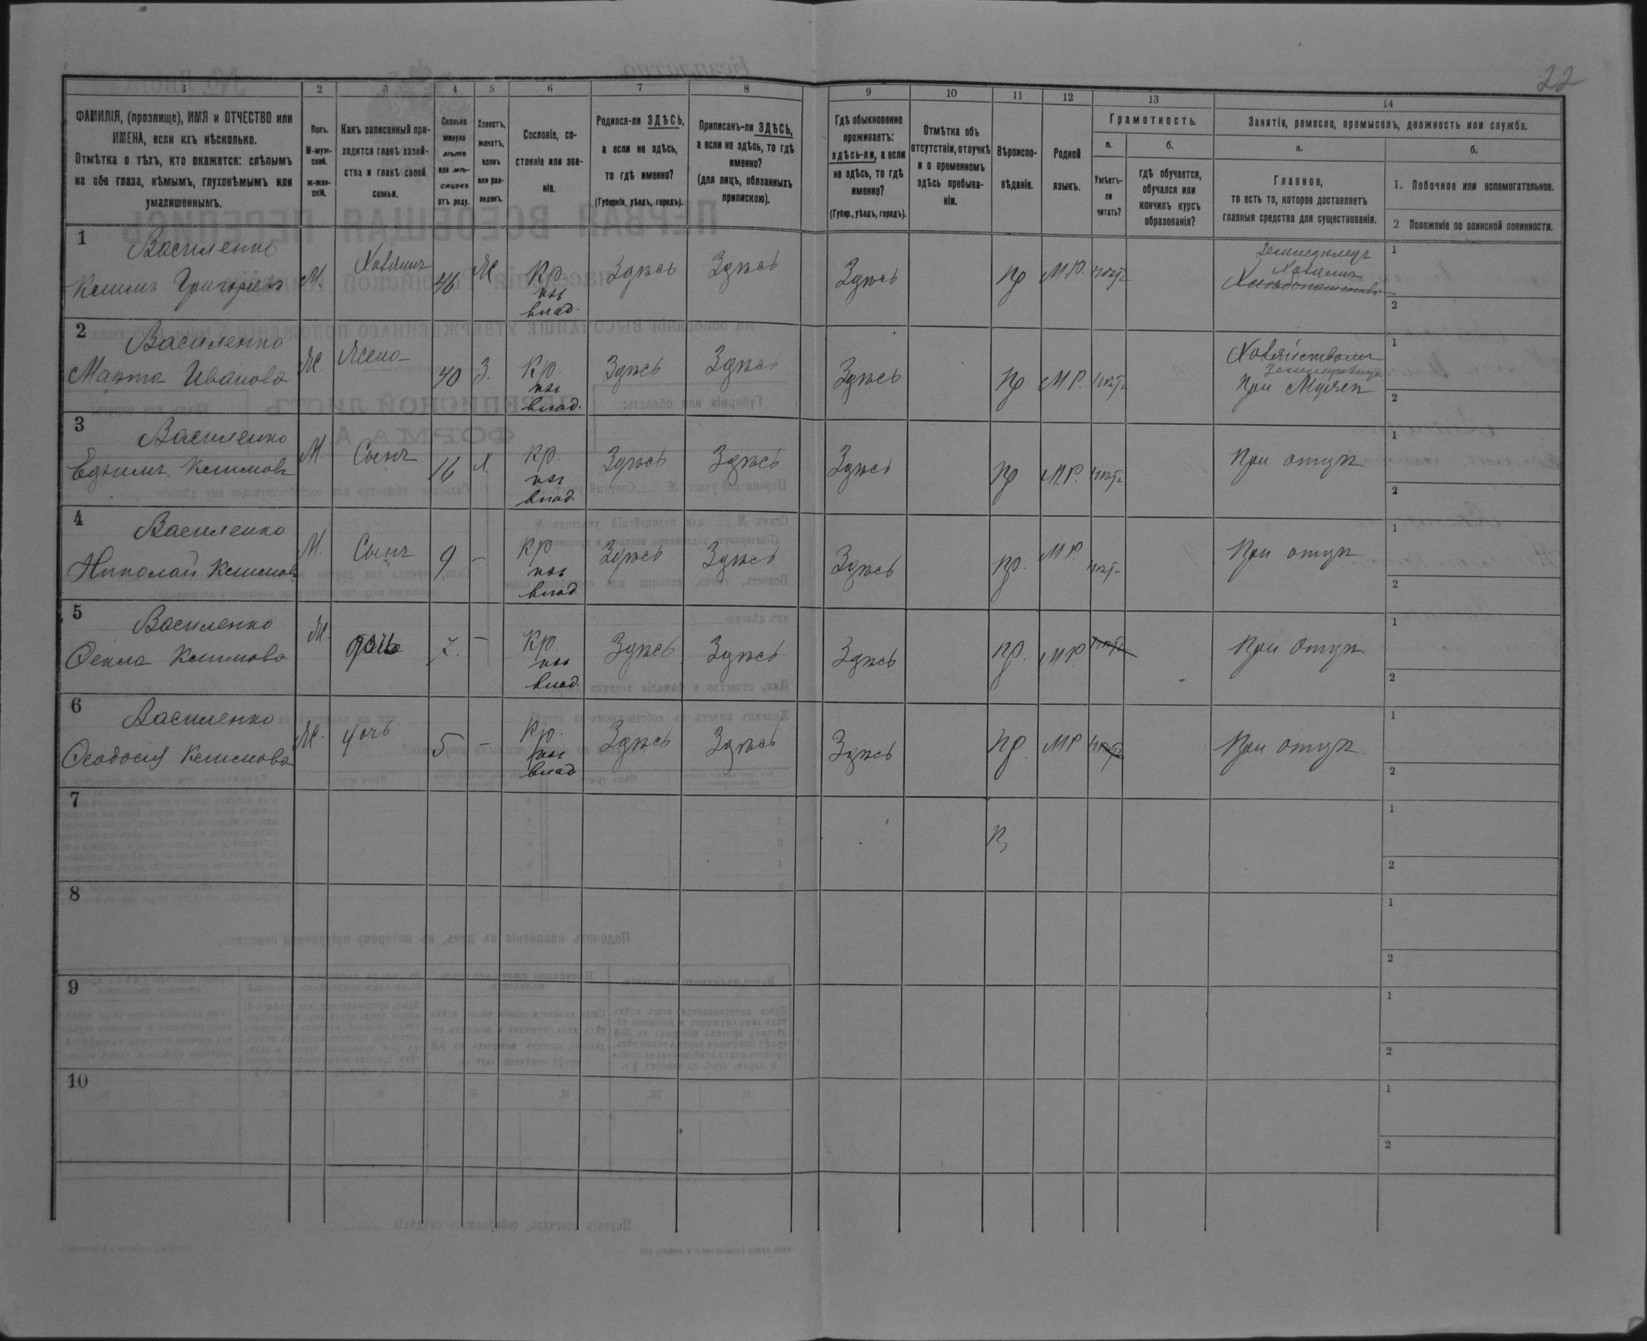 22
1 2 3 4 5 6 7 8 9 10 11 12 13 14
ФАМИЛІЯ, (прозвище), ИМЯ и ОТЧЕСТВО или
ИМЕНА, если ихъ нѣсколько.
Отмѣтка о тѣхъ, кто окажется: слѣпымъ
на оба глаза, нѣмымъ, глухонѣмымъ или
умалишеннымъ.
Полъ.
М-муж-
ской.
ж-жен-
скій.
Какъ записанный при-
ходится главѣ хозяй-
ства и главѣ своей
семьи.
Сколько
минуло
лѣтъ
или мѣ-
сяцевъ
отъ роду.
Холостъ,
женатъ,
вдовъ
или раз-
веденъ.
Сословіе, со-
стояніе или зва-
ніе.
Родился-ли ЗДѢСЬ,
а если не здѣсь,
то гдѣ именно?
(Губернія, уѣздъ, городъ).
Приписанъ-ли ЗДѢСЬ,
а если не здѣсь, то гдѣ
именно?
(для лицъ, обязанныхъ
припискою).
Гдѣ обыкновенно
проживаетъ:
здѣсь-ли, а если
не здѣсь, то гдѣ
именно?
(Губер., уѣздъ, городъ).
Отмѣтка объ
отсутствіи, отлучкѣ
и о временномъ
здѣсь пребыва-
ніи.
Вѣроиспо-
вѣданіе.
Родной
языкъ.
Грамотность.
а.
Умѣетъ-
ли
читать?
б.
гдѣ обучается,
обучался или
кончилъ курсъ
образованія?
Занятіе, ремесло, промыселъ, должность или служба.
а.
Главное,
то есть то, которое доставляетъ
главныя средства для существованія.
б.
1. Побочное или вспомогательное.
2 Положеніе по воинской повинности.
1
Василенко
Климъ Григорьевъ М. Хозяинъ 46 Ж Кр. Здѣсь Здѣсь Здѣсь пр М.Р. нѣтъ
влад.
Земледѣлецъ
Хозяинъ
1
2
2
Василенко
Марта Иванова Ж. Жена 40 З. Кр. Здѣсь Здѣсь Здѣсь пр МР. нѣтъ
влад.
при Мужѣ
1
2
3
Василенко
Ефимъ Климовъ М. Сынъ 16 х. Кр. Здѣсь Здѣсь Здѣсь пр М.Р. нѣтъ При отцѣ
влад.
1
2
4
Василенко
Николай Климовъ М. Сынъ 9 - Кр Здѣсь Здѣсь Здѣсь пр. МР нѣтъ При отцѣ
влад
1
2
5
Василенко
Фекла Климова Ж. дочь 7. - Кр. Здѣсь Здѣсь Здѣсь пр. МР нѣтъ При отцѣ
влад.
1
2
6
Василенко
Феодосія Климова Ж. дочь 5 - Кр. Здѣсь Здѣсь Здѣсь пр. МР нѣтъ При отцѣ
влад
1
2
7
1
2
8
1
2
9
1
2
10
1
2